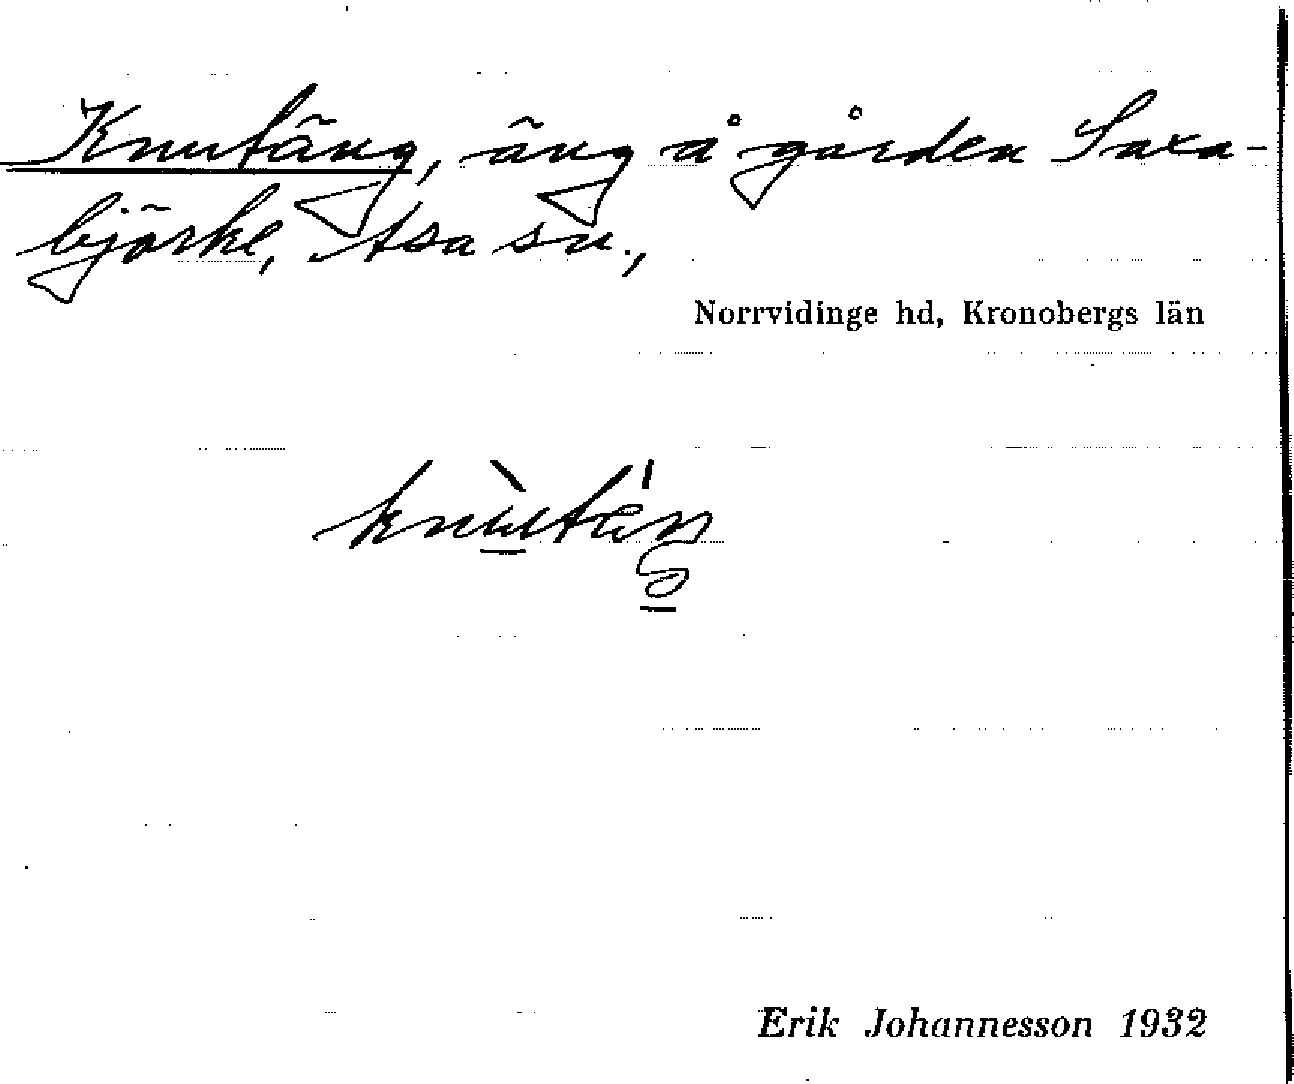 Knutäng, äng å gården Saxa-
björke, Asa sn.,
Norrvidinge hd, Kronobergs län
Erik Johannesson 1932